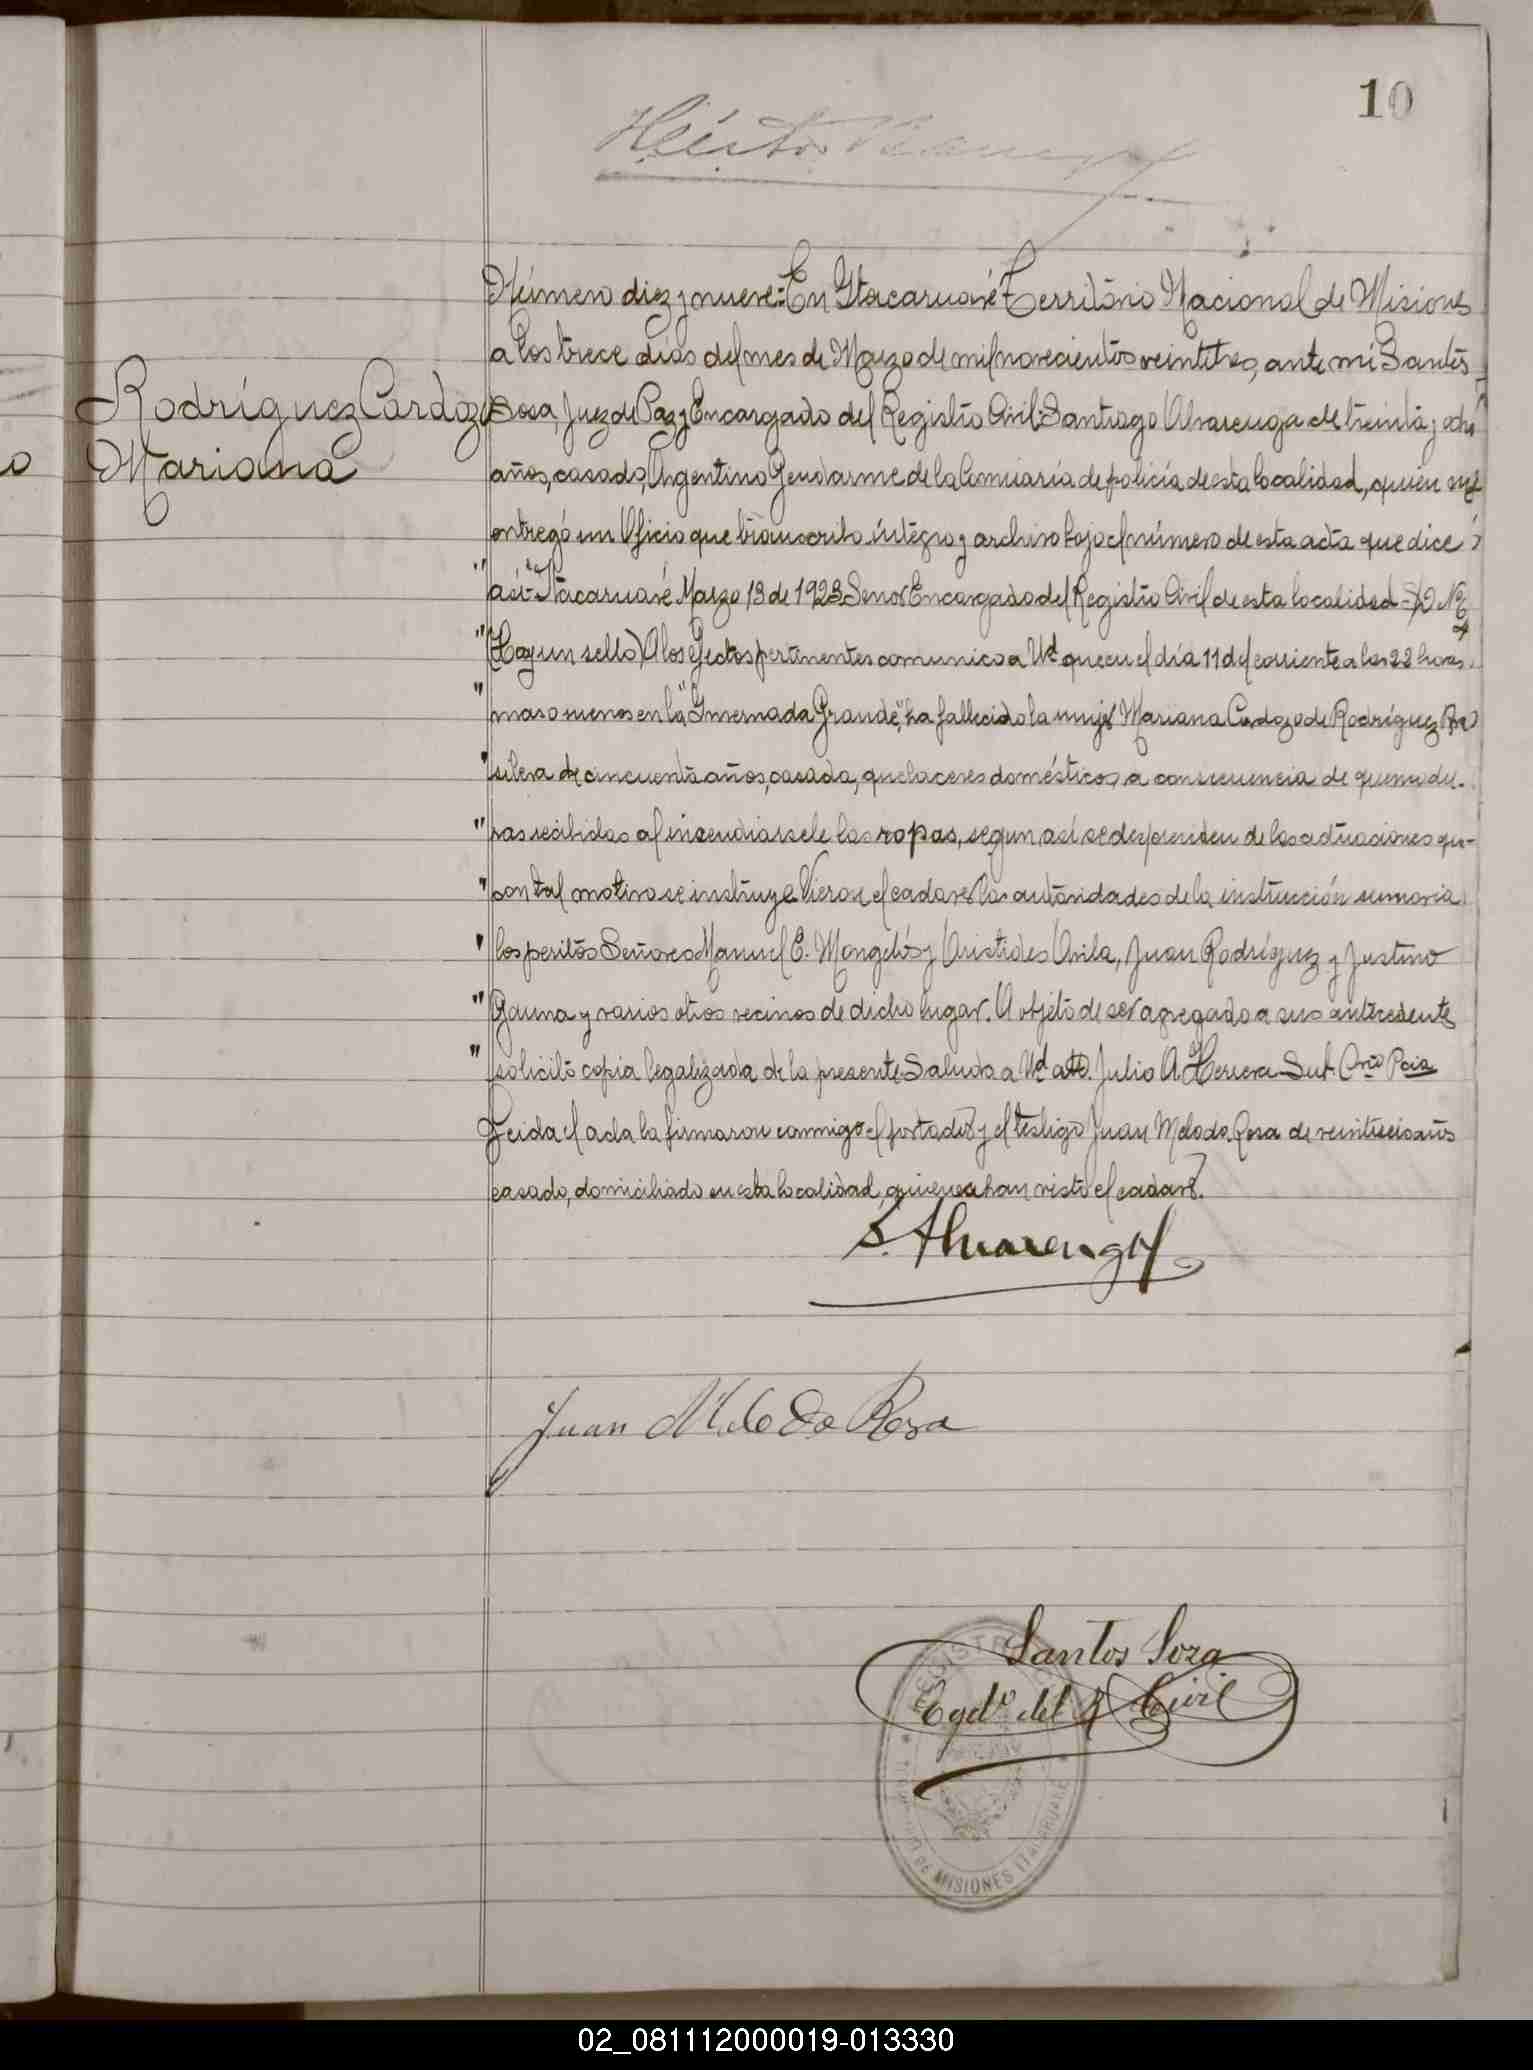 10
Héctor
Número diez y nueve: En Ytacaruaré Territorio Nacional de Misiones
a los trece días del mes de Marzo de mil novecientos veintitres, ante mí Santos
Rodríguez Cardozo
Mariana
Sosa, Juez de Paz y Encargado del Registro Civil: Santiago Alvarenga de treinta y ocho
años, casado, Argentino Gendarme de la Comisaría de policía de esta localidad, quien me
entregó un Oficio que transcribo íntegro y archivo bajo el número de esta acta que dice
así: "Itacaruaré Marzo 13 de 1923 Señor Encargado del Registro Civil de esta localidad - S/D Nº
" (Hay un sello) A los efectos pertinentes comunico a Ud que en el día 11 del corriente a las 22 horas
" mas o menos en la "Invernada Grande", ha fallecido la mujer Mariana Cardozo de Rodríguez Bra
" silera de cincuenta años, casada, quehaceres domésticos, a consecuencia de quemadu-
" ras recibidas al incendiarsele las ropas, segun así se desprenden de las actuaciones que
" con tal motivo se instruye. Vieron el cadaver las autoridades de la instrucción sumaria
" los peritos Señores Manuel E. Mongelós y Aristides Avila, Juan Rodríguez y Justino
" Gauna y varios otros vecinos de dicho lugar. A objeto de ser agregado a sus antecedentes
" solicito copia legalizada de la presente. Saluda a Ud atto. Julio A. Herrera Sub. Crio Pcia
Leida el acta la firmaron conmigo el portador y el testigo Juan M do Rosa de veintiseis años
casado, domiciliado en esta localidad, quienes han visto el cadaver.
S. Alvarenga
Juan M. da Rosa
Santos Soza
Egdo del R Civil
REGISTR
MISIONES ITACARUARÉ
02_081112000019-013330